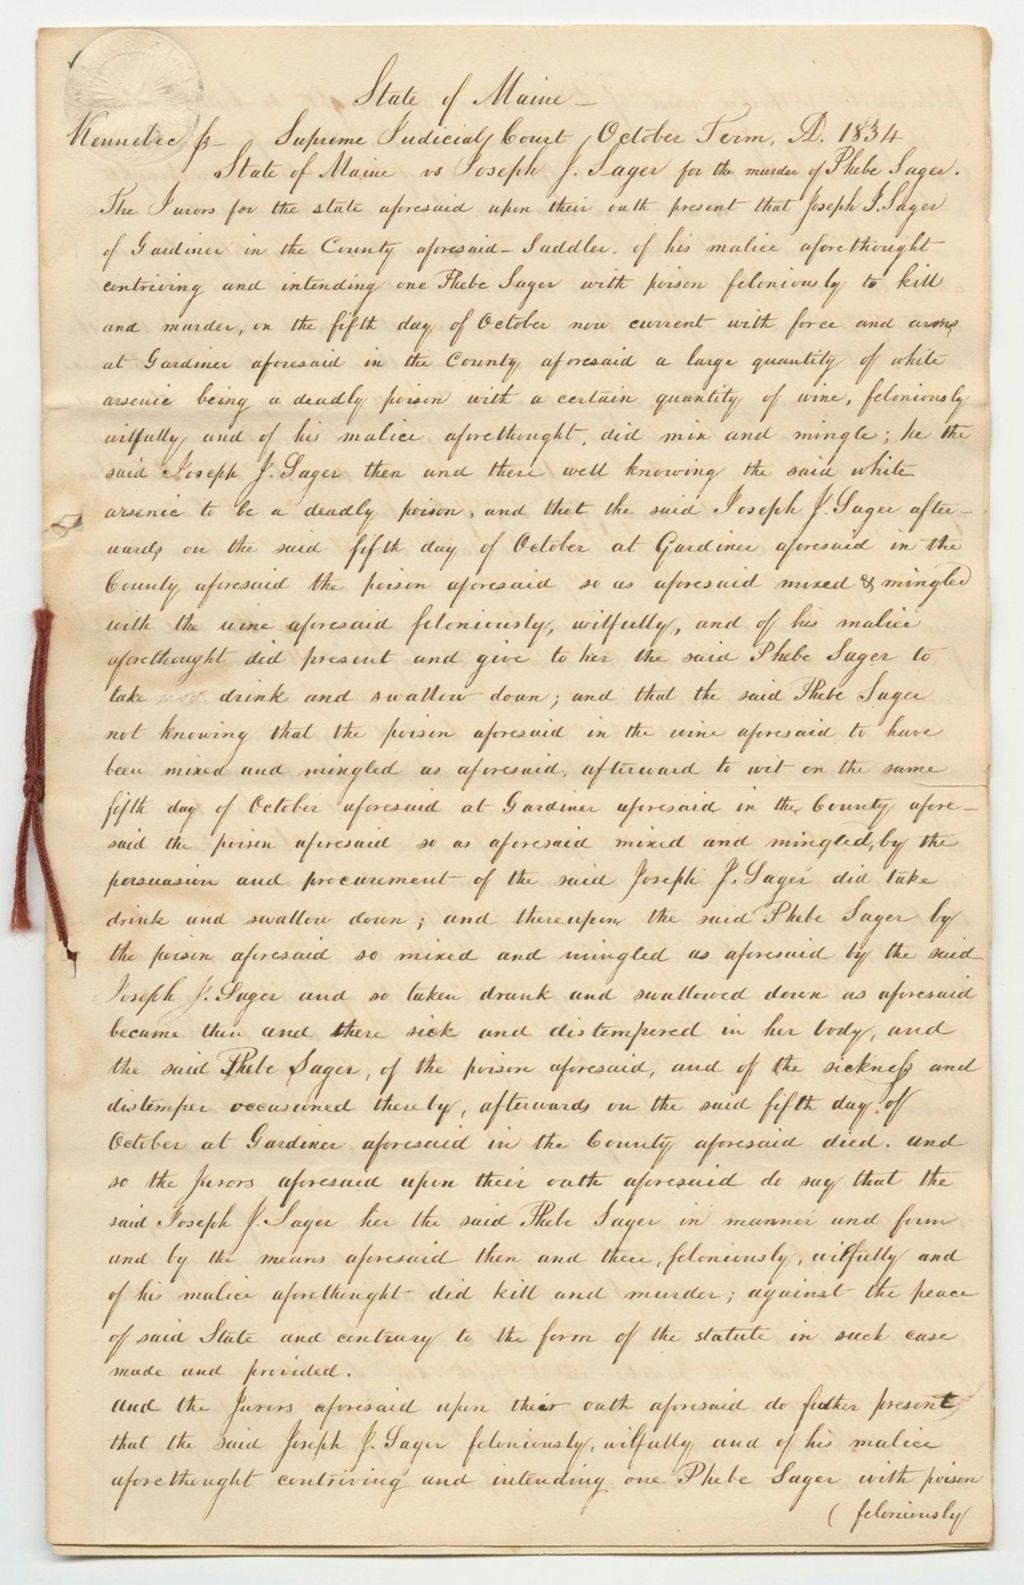 State of Maine —
Kennebec ss — Supreme Judicial Court, October Term, AD. 1834
State of Maine vs Joseph J. Sager for the murder of Phebe Sager.
The Jurors for the state aforesaid upon their oath present that Joseph J. Sager
of Gardiner in the County aforesaid — Saddler. of his malice aforethought
contriving and intending one Phebe Sager with poison feloniously to kill
and murder, on the fifth day of October now current with force and arms
at Gardiner aforesaid in the County aforesaid a large quantity of white
arsenic being a deadly poison with a certain quantity of wine, feloniously
wilfully and of his malice aforethought, did mix and mingle; he the
said Joseph J. Sager then and there well knowing the said white
arsenic to be a deadly poison, and that the said Joseph J. Sager after—
wards on the said fifth day of October at Gardiner aforesaid in the
County aforesaid the poison aforesaid so as aforesaid mixed & mingled
with the wine aforesaid feloniously, wilfully, and of his malice
aforethought did present and give to her the said Phebe Sager to
take drink and swallow down; and that the said Phebe Sager
not knowing that the poison aforesaid in the wine aforesaid to have
been mixed and mingled as aforesaid, afterward to wit on the same
fifth day of October aforesaid at Gardiner aforesaid in the County afore—
said the poison aforesaid so as aforesaid mixed and mingled, by the
persuasion and procurement of the said Joseph J. Sager did take
drink and swallow down; and thereupon the said Phebe Sager by
the poison aforesaid so mixed and mingled as aforesaid by the said
Joseph J. Sager and so taken drank and swallowed down as aforesaid
became then and there sick and distempered in her body, and
the said Phebe Sager, of the poison aforesaid, and of the sickness and
distemper occasioned thereby, afterwards on the said fifth day of
October at Gardiner aforesaid in the County aforesaid died. and
so the Jurors aforesaid upon their oath aforesaid do say that the
said Joseph J. Sager her the said Phebe Sager in manner and form
and by the means aforesaid then and there, feloniously, wilfully and
of his malice aforethought did kill and murder; against the peace
of said State and contrary to the form of the statute in such case
made and provided.
and the Jurors aforesaid upon their oath aforesaid do futher present
that the said Joseph J. Sager feloniously, wilfully and of his malice
aforethought contriving and intending one Phebe Sager with poison
( feloniously